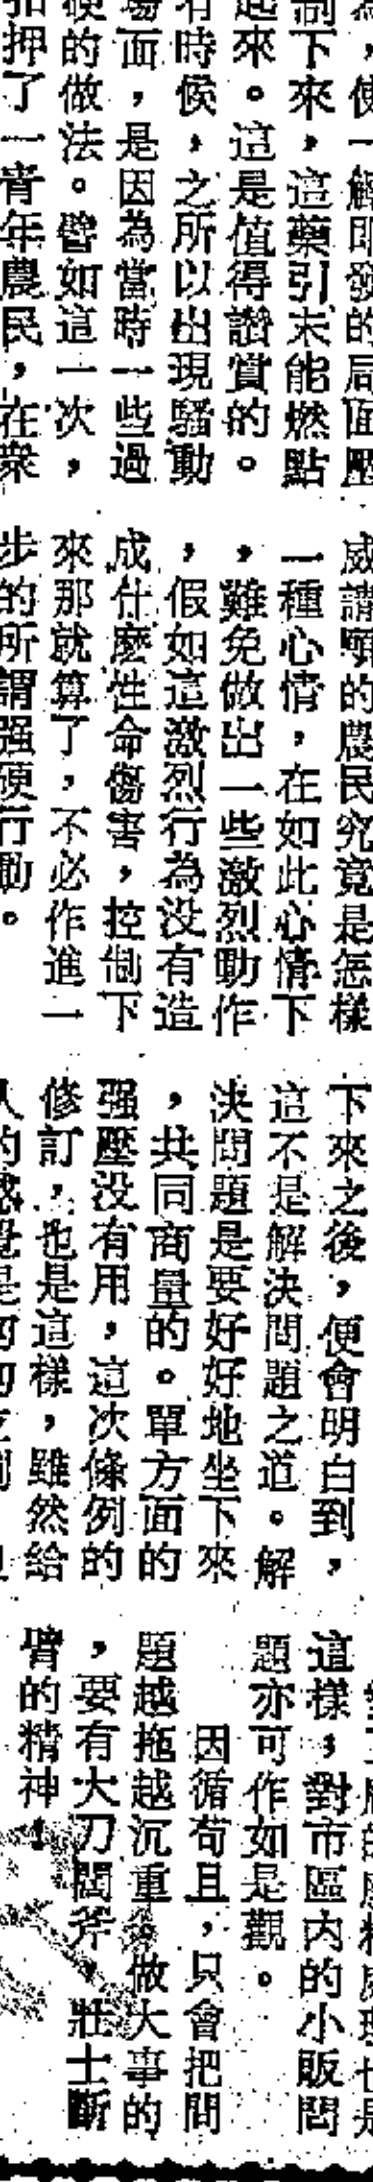 為,使一觸即發的局面壓
制下來,這藥引未能燃點
起來。這是值得讚賞的。
有時候,之所以出現騷動
場面,是因為當時一些過
硬的做法。譬如這一次,
扣押了一青年農民,在衆
威請願的農民究竟是怎樣
一種心情,在如此心情下
,難免做出一些激烈動作
,假如這激烈行為没有造
成什麽性命傷害,控制下
來那就算了,不必作進一
步的所謂强硬行動。
下來之後,便會明白到,
這不是解決問題之道。解
決問題是要好好地坐下來
,共同商量的。單方面的
强壓没有用,這次條例的
修訂,也是這樣,雖然給
人的感覺是
的廢料處理也是
這樣,對市區內的小販問
題亦可作如是觀。
因循苟且,只會把問
題越拖越沉重。做大事的
,要有大刀闊斧,壯士斷
臂的精神!